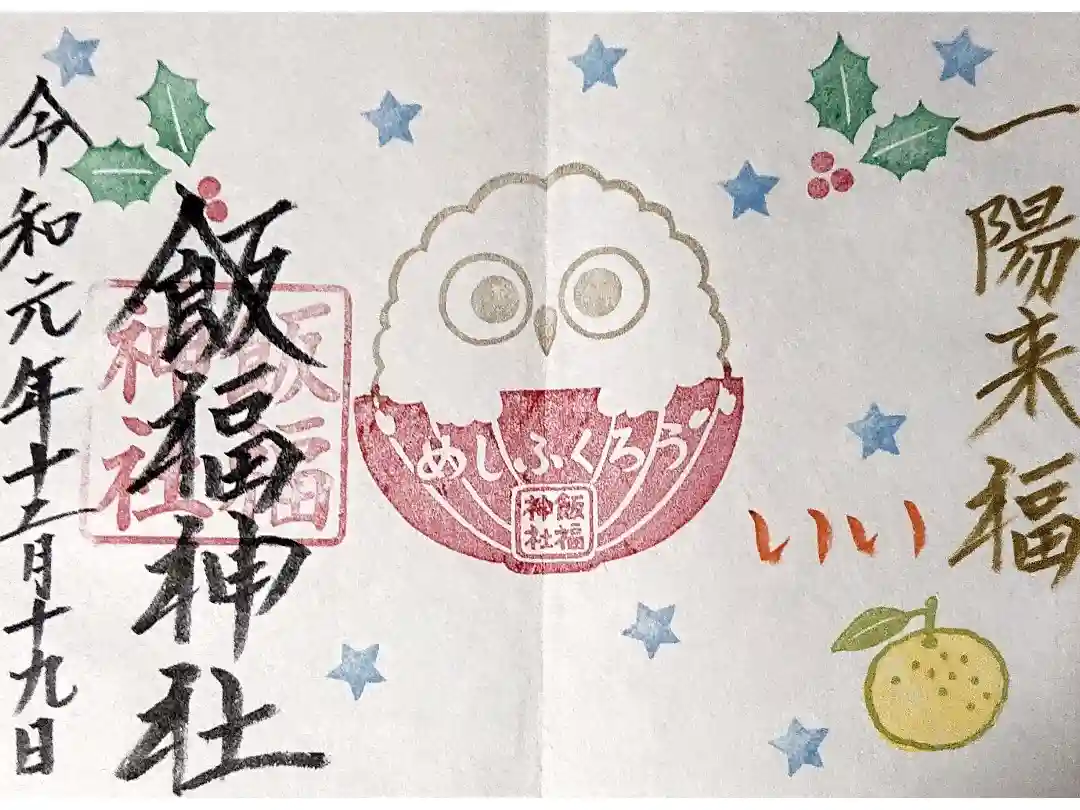 一陽来福
いい
めしふくろう
飯福
神社
飯福神社
飯福
神社
令和元年十二月十九日